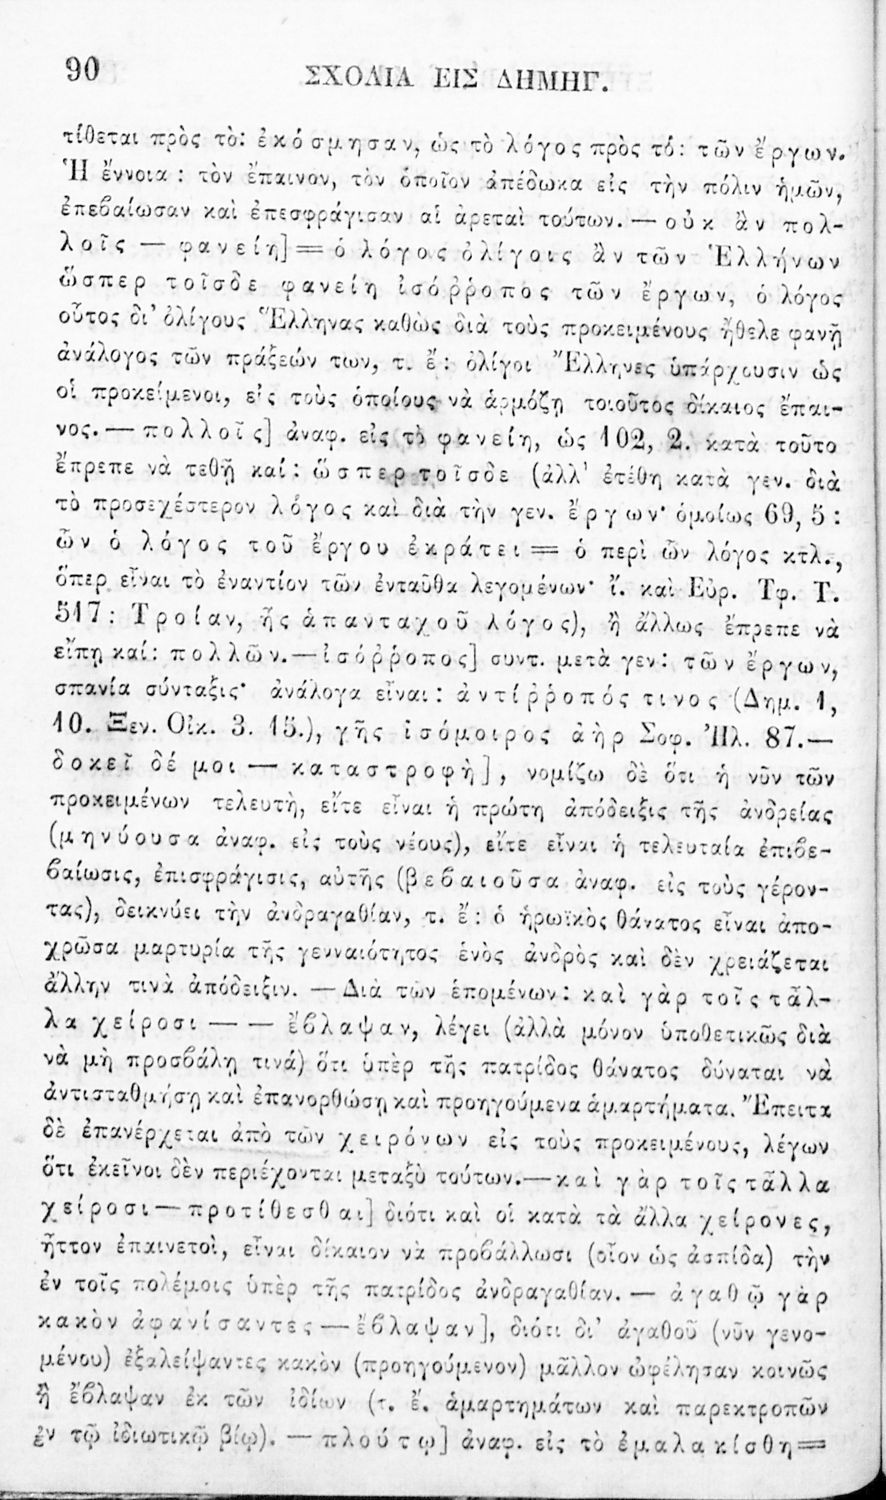 90
ΣΧΟΛΙΑ ΕΙΣ ΔΗΜΗΓ.
τίθεται πρὸς τὸ: ἐκόσμησαν, ὡς τὸ λόγος πρὸς τό: τῶν ἔργων.
Ἡ ἔννοια: τὸν ἔπαινον, τὸν ὁποῖον ἀπέδωκα εἰς τὴν πόλιν ἡμῶν,
ἐπεβαίωσαν καὶ ἐπεσφράγισαν αἱ ἀρεταὶ τούτων. — οὐκ ἂν πολ-
λοῖς — φανείη] = ὁ λόγος ὀλίγοις ἂν τῶν Ἑλλήνων
ὥσπερ τοῖσδε φανείη ἰσόῤῥοπος τῶν ἔργων, ὁ λόγος
οὗτος δι' ὀλίγους Ἕλληνας καθὼς διὰ τοὺς προκειμένους ἤθελε φανῆ
ἀνάλογος τῶν πράξεών των, τ. ἔ: ὀλίγοι Ἕλληνες ὑπάρχουσιν ὡς
οἱ προκείμενοι, εἰς τοὺς ὁποίους νὰ ἁρμόζῃ τοιοῦτος δίκαιος ἔπαι-
νος. — πολλοῖς] ἀναφ. εἰς τὸ φανείη, ὡς 102, 2. κατὰ τοῦτο
ἔπρεπε νὰ τεθῇ καί: ὥσπερ τοῖσδε (ἀλλ' ἐτέθη κατὰ γεν. διὰ
τὸ προσεχέστερον λόγος καὶ διὰ τὴν γεν. ἔργων· ὁμοίως 69, 5:
ὧν ὁ λόγος τοῦ ἔργου ἐκράτει = ὁ περὶ ὧν λόγος κτλ.,
ὅπερ εἶναι τὸ ἐναντίον τῶν ἐνταῦθα λεγομένων· ἴ. καὶ Εὐρ. Τφ. Τ.
517: Τροίαν, ἧς ἁπανταχοῦ λόγος), ἢ ἄλλως ἔπρεπε νὰ
εἴπῃ καί: πολλῶν. — ἰσόῤῥοπος] συντ. μετὰ γεν: τῶν ἔργων,
σπανία σύνταξις· ἀνάλογα εἶναι: ἀντίῤῥοπός τινος (Δημ. 1,
10. Ξεν. Οἰκ. 3. 15.), γῆς ἰσόμοιρος ἀὴρ Σοφ. Ἠλ. 87. —
δοκεῖ δέ μοι — καταστροφὴ], νομίζω δὲ ὅτι ἡ νῦν τῶν
προκειμένων τελευτὴ, εἴτε εἶναι ἡ πρώτη ἀπόδειξις τῆς ἀνδρείας
(μηνύουσα ἀναφ. εἰς τοὺς νέους), εἴτε εἶναι ἡ τελευταία ἐπιβε-
βαίωσις, ἐπισφράγισις, αὐτῆς (βεβαιοῦσα ἀναφ. εἰς τοὺς γέρον-
τας), δεικνύει τὴν ἀνδραγαθίαν, τ. ἔ: ὁ ἡρωϊκὸς θάνατος εἶναι ἀπο-
χρῶσα μαρτυρία τῆς γενναιότητος ἑνὸς ἀνδρὸς καὶ δὲν χρειάζεται
ἄλλην τινὰ ἀπόδειξιν. — Διὰ τῶν ἑπομένων: καὶ γὰρ τοῖς τἆλ-
λα χείροσι — — ἔβλαψαν, λέγει (ἀλλὰ μόνον ὑποθετικῶς διὰ
νὰ μὴ προσβάλῃ τινά) ὅτι ὑπὲρ τῆς πατρίδος θάνατος δύναται νὰ
ἀντισταθμήσῃ καὶ ἐπανορθώσῃ καὶ προηγούμενα ἁμαρτήματα. Ἔπειτα
δὲ ἐπανέρχεται ἀπὸ τῶν χειρόνων εἰς τοὺς προκειμένους, λέγων
ὅτι ἐκεῖνοι δὲν περιέχονται μεταξὺ τούτων. — καὶ γὰρ τοῖς τἆλλα
χείροσι — προτίθεσθαι] διότι καὶ οἱ κατὰ τὰ ἄλλα χείρονες,
ἧττον ἐπαινετοὶ, εἶναι δίκαιον νὰ προβάλλωσι (οἷον ὡς ἀσπίδα) τὴν
ἐν τοῖς πολέμοις ὑπὲρ τῆς πατρίδος ἀνδραγαθίαν. — ἀγαθῷ γὰρ
κακὸν ἀφανίσαντες — ἔβλαψαν], διότι δι' ἀγαθοῦ (νῦν γενο-
μένου) ἐξαλείψαντες κακὸν (προηγούμενον) μᾶλλον ὠφέλησαν κοινῶς
ἢ ἔβλαψαν ἐκ τῶν ἰδίων (τ. ἔ. ἁμαρτημάτων καὶ παρεκτροπῶν
ἐν τῷ ἰδιωτικῷ βίῳ). — πλούτῳ] ἀναφ. εἰς τὸ ἐμαλακίσθη =